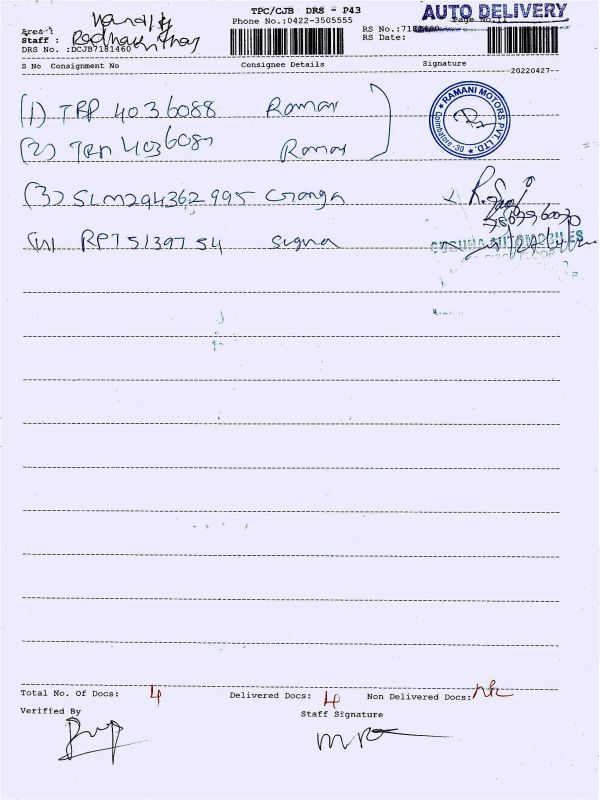 TPC/CJB DRS - P43
AUTO DELIVERY
Area :
Phone No.:0422-3505555
Page No
Staff :
RS No.:7181460
DRS No. :DCJB7181460
RS Date:
S No Consignment No Consignee Details Signature
20220427
(1) TRP 4036088 Raman
RAMANI MOTORS PVT. LTD.
Coimbatore -30
(2) Raman
(3) SLM294362995 Ganga
RPT 5139754 Suguna
SUGUNA AUTOMOBILES
Total No. Of Docs: 4 Delivered Docs: 4 Non Delivered Docs:
Verified By Staff Signature